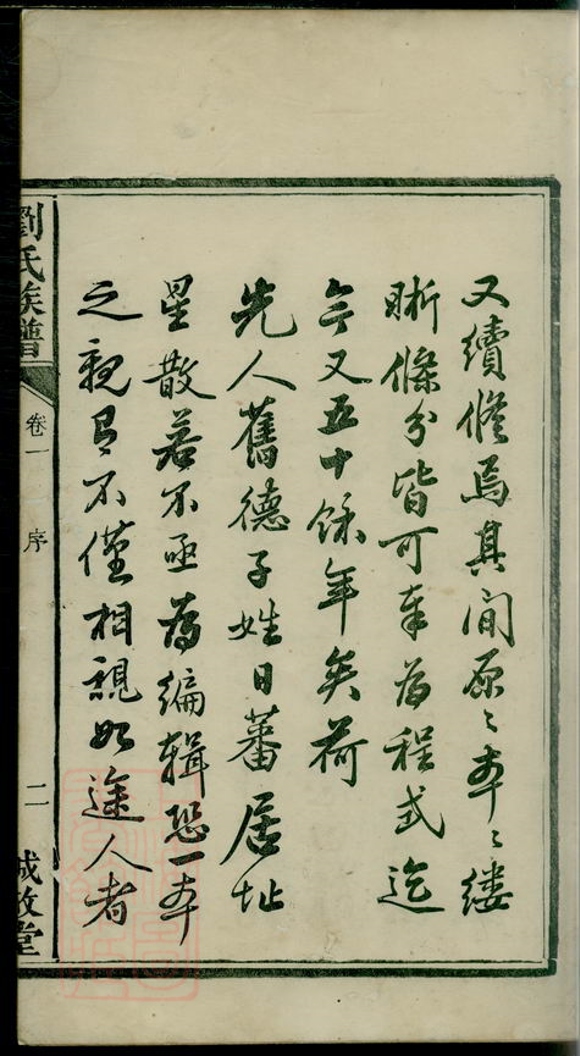 又續修焉其间原〻本〻缕
晰條分皆可奉為程式迄
今又五十餘年矣荷
先人舊德子姓日蕃居址
星散若不亟為編輯恐一本
之親有不僅相視如途人者
劉氏族譜
卷一
序
二
誠敬堂